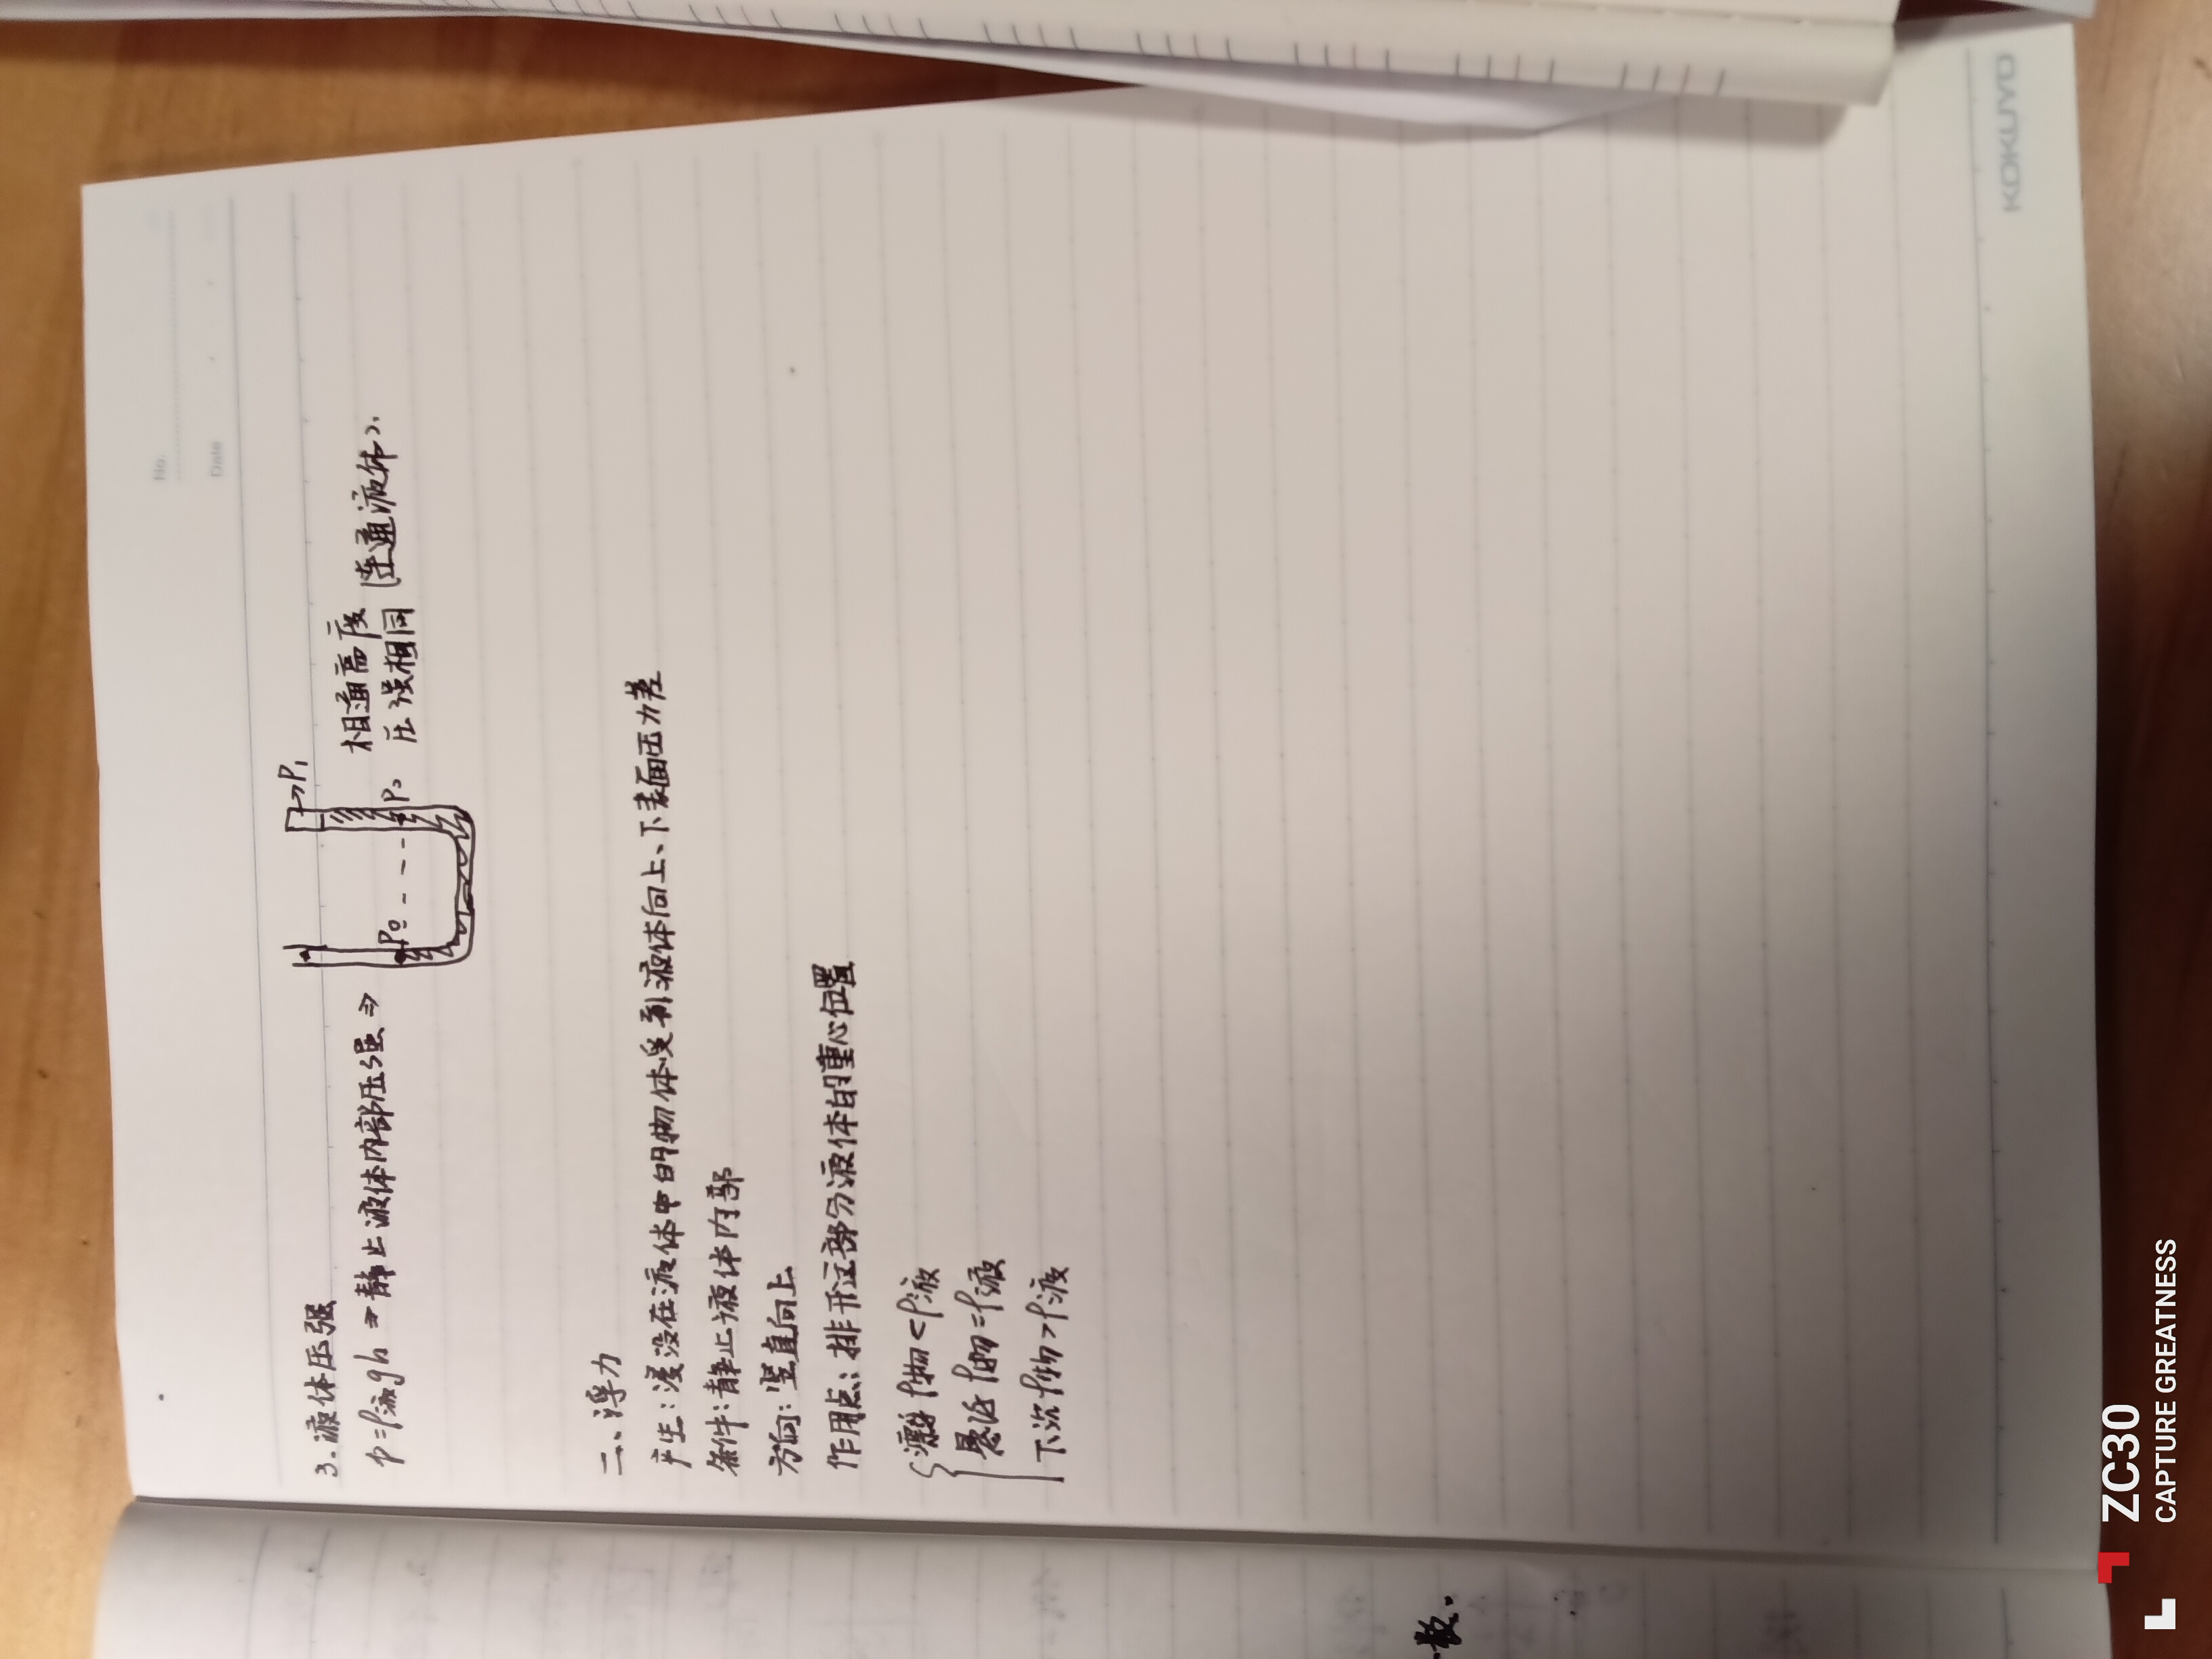 No.
Date
3.液体压强
p=ρ液gh ⇒ 静止液体内部压强 ⇒
P₀
P₁
P₀
相通高度
压强相同
(连通液体).
二、浮力
产生:浸没在液体中的物体受到液体向上、下表面压力差
条件:静止液体内部
方向:竖直向上
作用点:排开这部分液体的重心位置
漂浮 ρ物<ρ液
悬浮 ρ物=ρ液
下沉 ρ物>ρ液
KOKUYO
数.
ZC30
CAPTURE GREATNESS